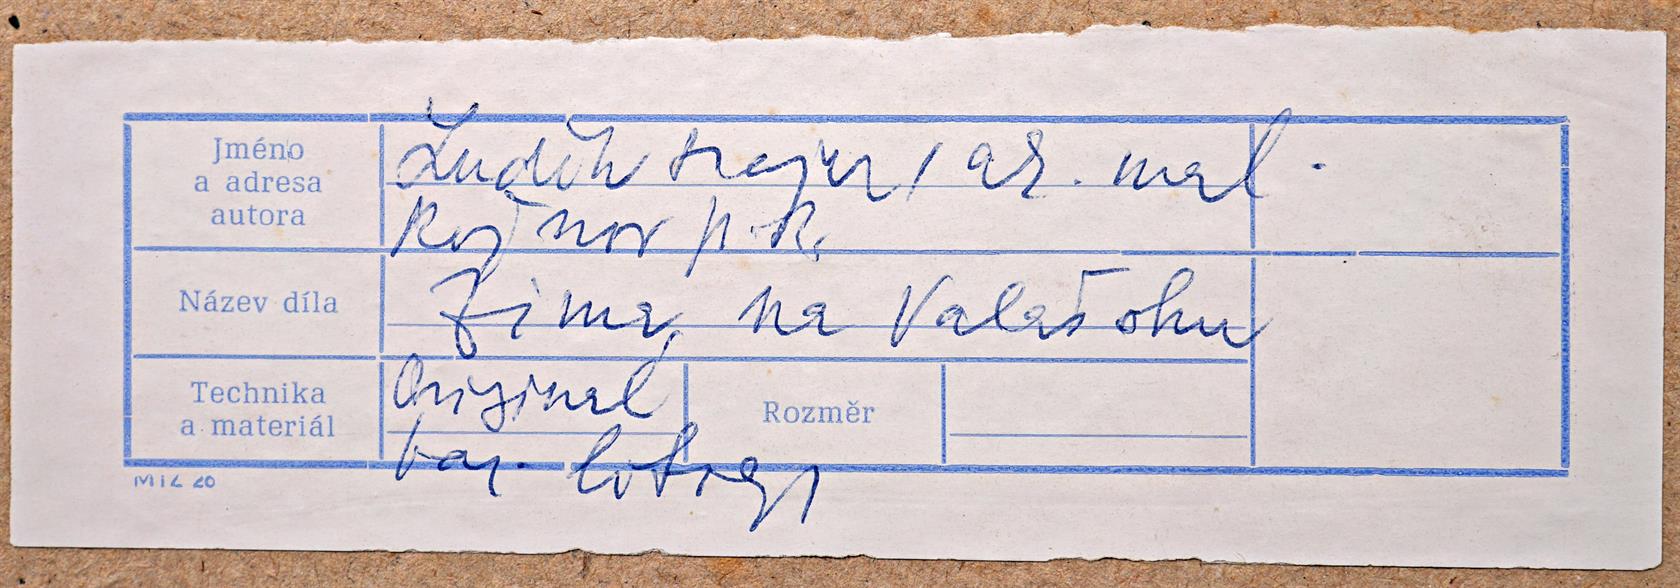 Jméno
a adresa
autora
Luděk
ak. mal.
Rožnov p. R.
Název díla
Zima na Valašsku
Technika
a materiál
Original
bar.
Rozměr
MTZ 20